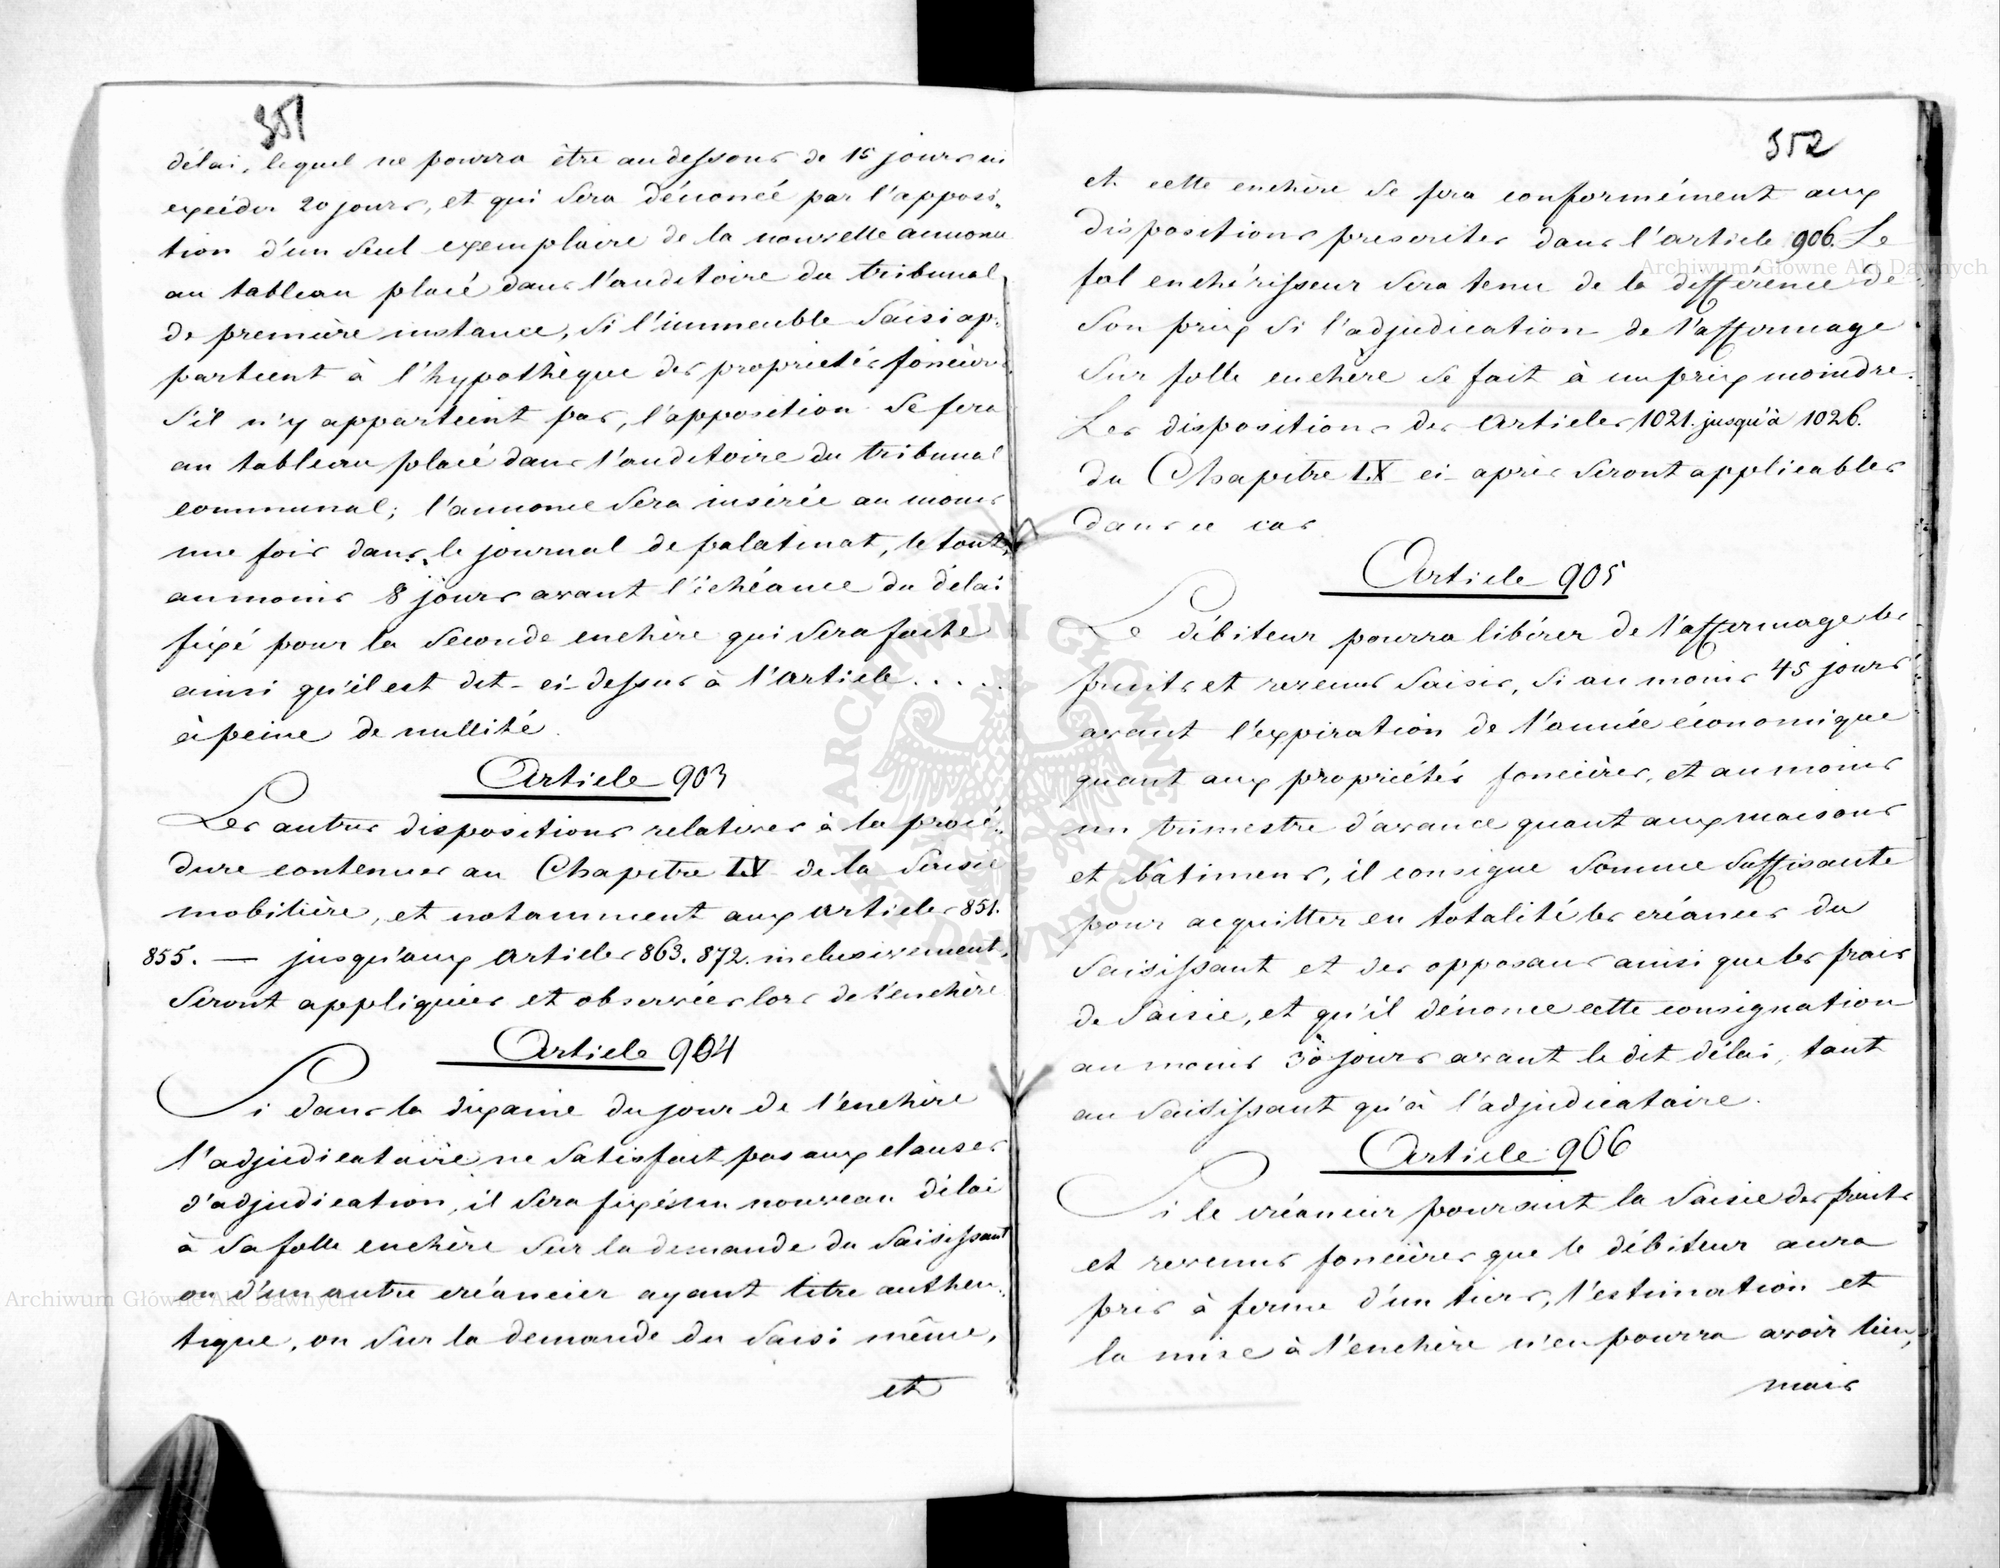 351
délai, lequel ne pourra être audessous de 15 jours ni
excéder 20 jours, et qui sera dénoncé par l'apposi-
tion d'un seul exemplaire de la nouvelle annonce
au tableau placé dans l'auditoire du tribunal
de première instance, si l'immeuble saisi ap-
partient à l'hypothèque des proprietés foncières
S'il n'y appartient pas, l'apposition se fera
au tableau placé dans l'auditoire du tribunal
communal; l'annonce sera insérée au moins
une fois dans le journal de palatinat, le tout,
aumoins 8 jours avant l'échéance du délai
fixé pour la seconde enchère qui sera faite
ainsi qu'il est dit-ci-dessus à l'article . . . .
à peine de nullité.
Article 903
Les autres dispositions relatives à la procé-
dure contenues au Chapitre IV de la Saisie
mobilière, et notamment aux articles 851.
855. — jusqu'aux articles 863. 872. inclusivement,
seront appliquées et observées lors de l'enchère
Article 904
Si dans la dixaine du jour de l'enchère
l'adjudicataire ne satisfait pas aux clauses
d'adjudication, il sera fixé un nouveau délai
à sa folle enchère sur la demande du saisissant
ou d'un autre créancier ayant titre authen-
tique, ou sur la demande du saisi même,
et
352
et cette enchère se fera conformément aux
dispositions prescrites dans l'article 906. Le
fol enchérisseur sera tenu de la différence de
son prix si l'adjudication de l'affermage
sur folle enchère se fait à un prix moindre.
Les dispositions des Articles 1021. jusqu'à 1026.
du Chapitre IX ci-après seront applicables
dans ce cas.
Article 905
Le débiteur pourra libérer de l'affermage les
fruits et revenus saisis, si au moins 45 jours
avant l'expiration de l'année économique
quant aux propriétés foncières, et au moins
un trimestre d'avance quant aux maisons
et bâtimens, il consigne somme suffisante
pour acquitter en totalité les créances du
saisissant et des opposans ainsi que les frais
de saisie, et qu'il dénonce cette consignation
au moins 30 jours avant le dit délai, tant
au saisissant qu'à l'adjudicataire.
Article 906
Si le créancier poursuit la saisie des fruits
et revenus foncières que le débiteur aura
pris à ferme d'un tiers, l'estimation et
la mise à l'enchère n'en pourra avoir lieu,
mais
Archiwum Główne Akt Dawnych
Archiwum Główne Akt Dawnych
ARCHIWUM GŁÓWNE AKT DAWNYCH